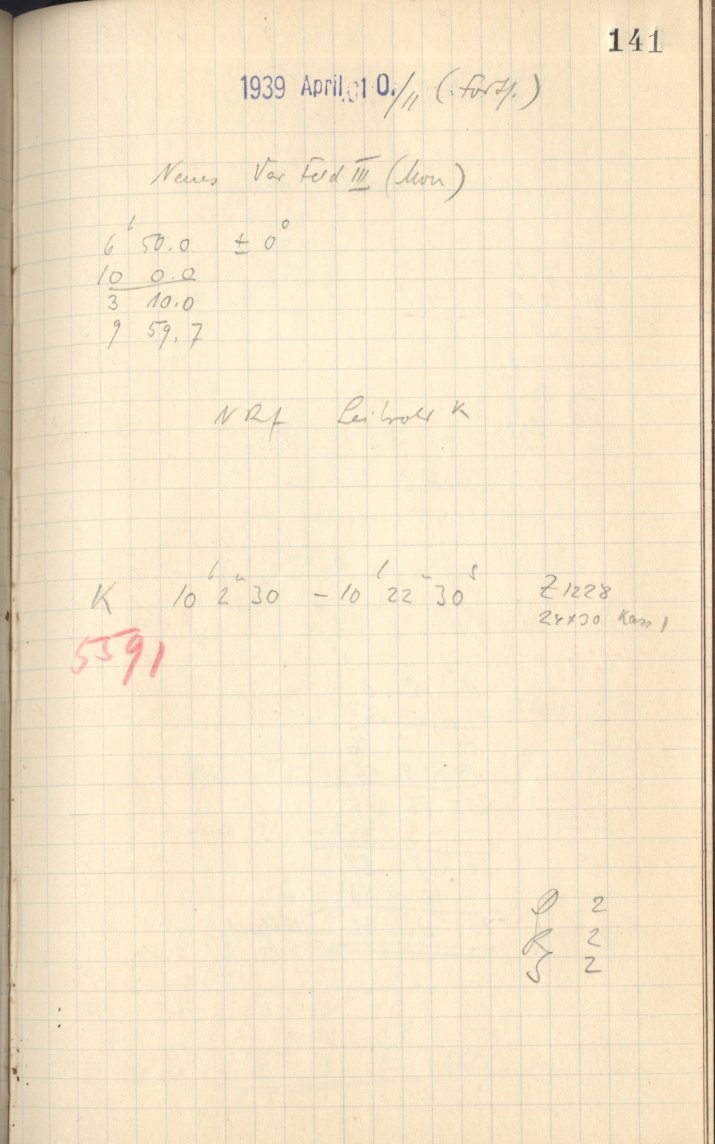 141
1939 April 10./11 (Forts.)
Neues Var Feld III (Mon)
6ʰ 50.0 ± 0°
10 0.0
3 10.0
9 59.7
N Rf K
K 10ʰ 2ᵐ 30 - 10ʰ 22ᵐ 30ˢ Z 1228
24×30 Kass 1
5591
D 2
R 2
S 2